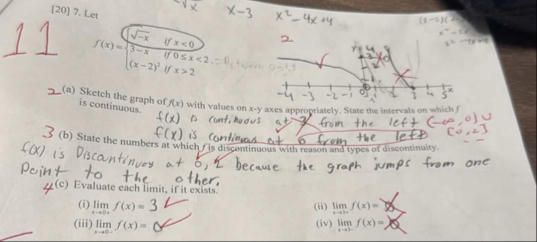 √x x-3 x²-4x+4
[20] 7. Let
11
f(x) = { √-x if x < 0
3-x if 0 ≤ x < 2
(x-2)² if x > 2
2
-4 -3 -2 -1
2 (a) Sketch the graph of f(x) with values on x-y axes appropriately. State the intervals on which f
is continuous.
f(x) is continuous at from the left (-∞, 0) ∪
f(x) is continuous at 0 from the left [0,2]
3 (b) State the numbers at which f is discontinuous with reason and types of discontinuity.
f(x) is Discontinuous at 0, 2 because the graph jumps from one
Point to the other.
4 (c) Evaluate each limit, if it exists.
(i) lim f(x) = 3 (ii) lim f(x) =
(iii) lim f(x) = 0 (iv) lim f(x) =